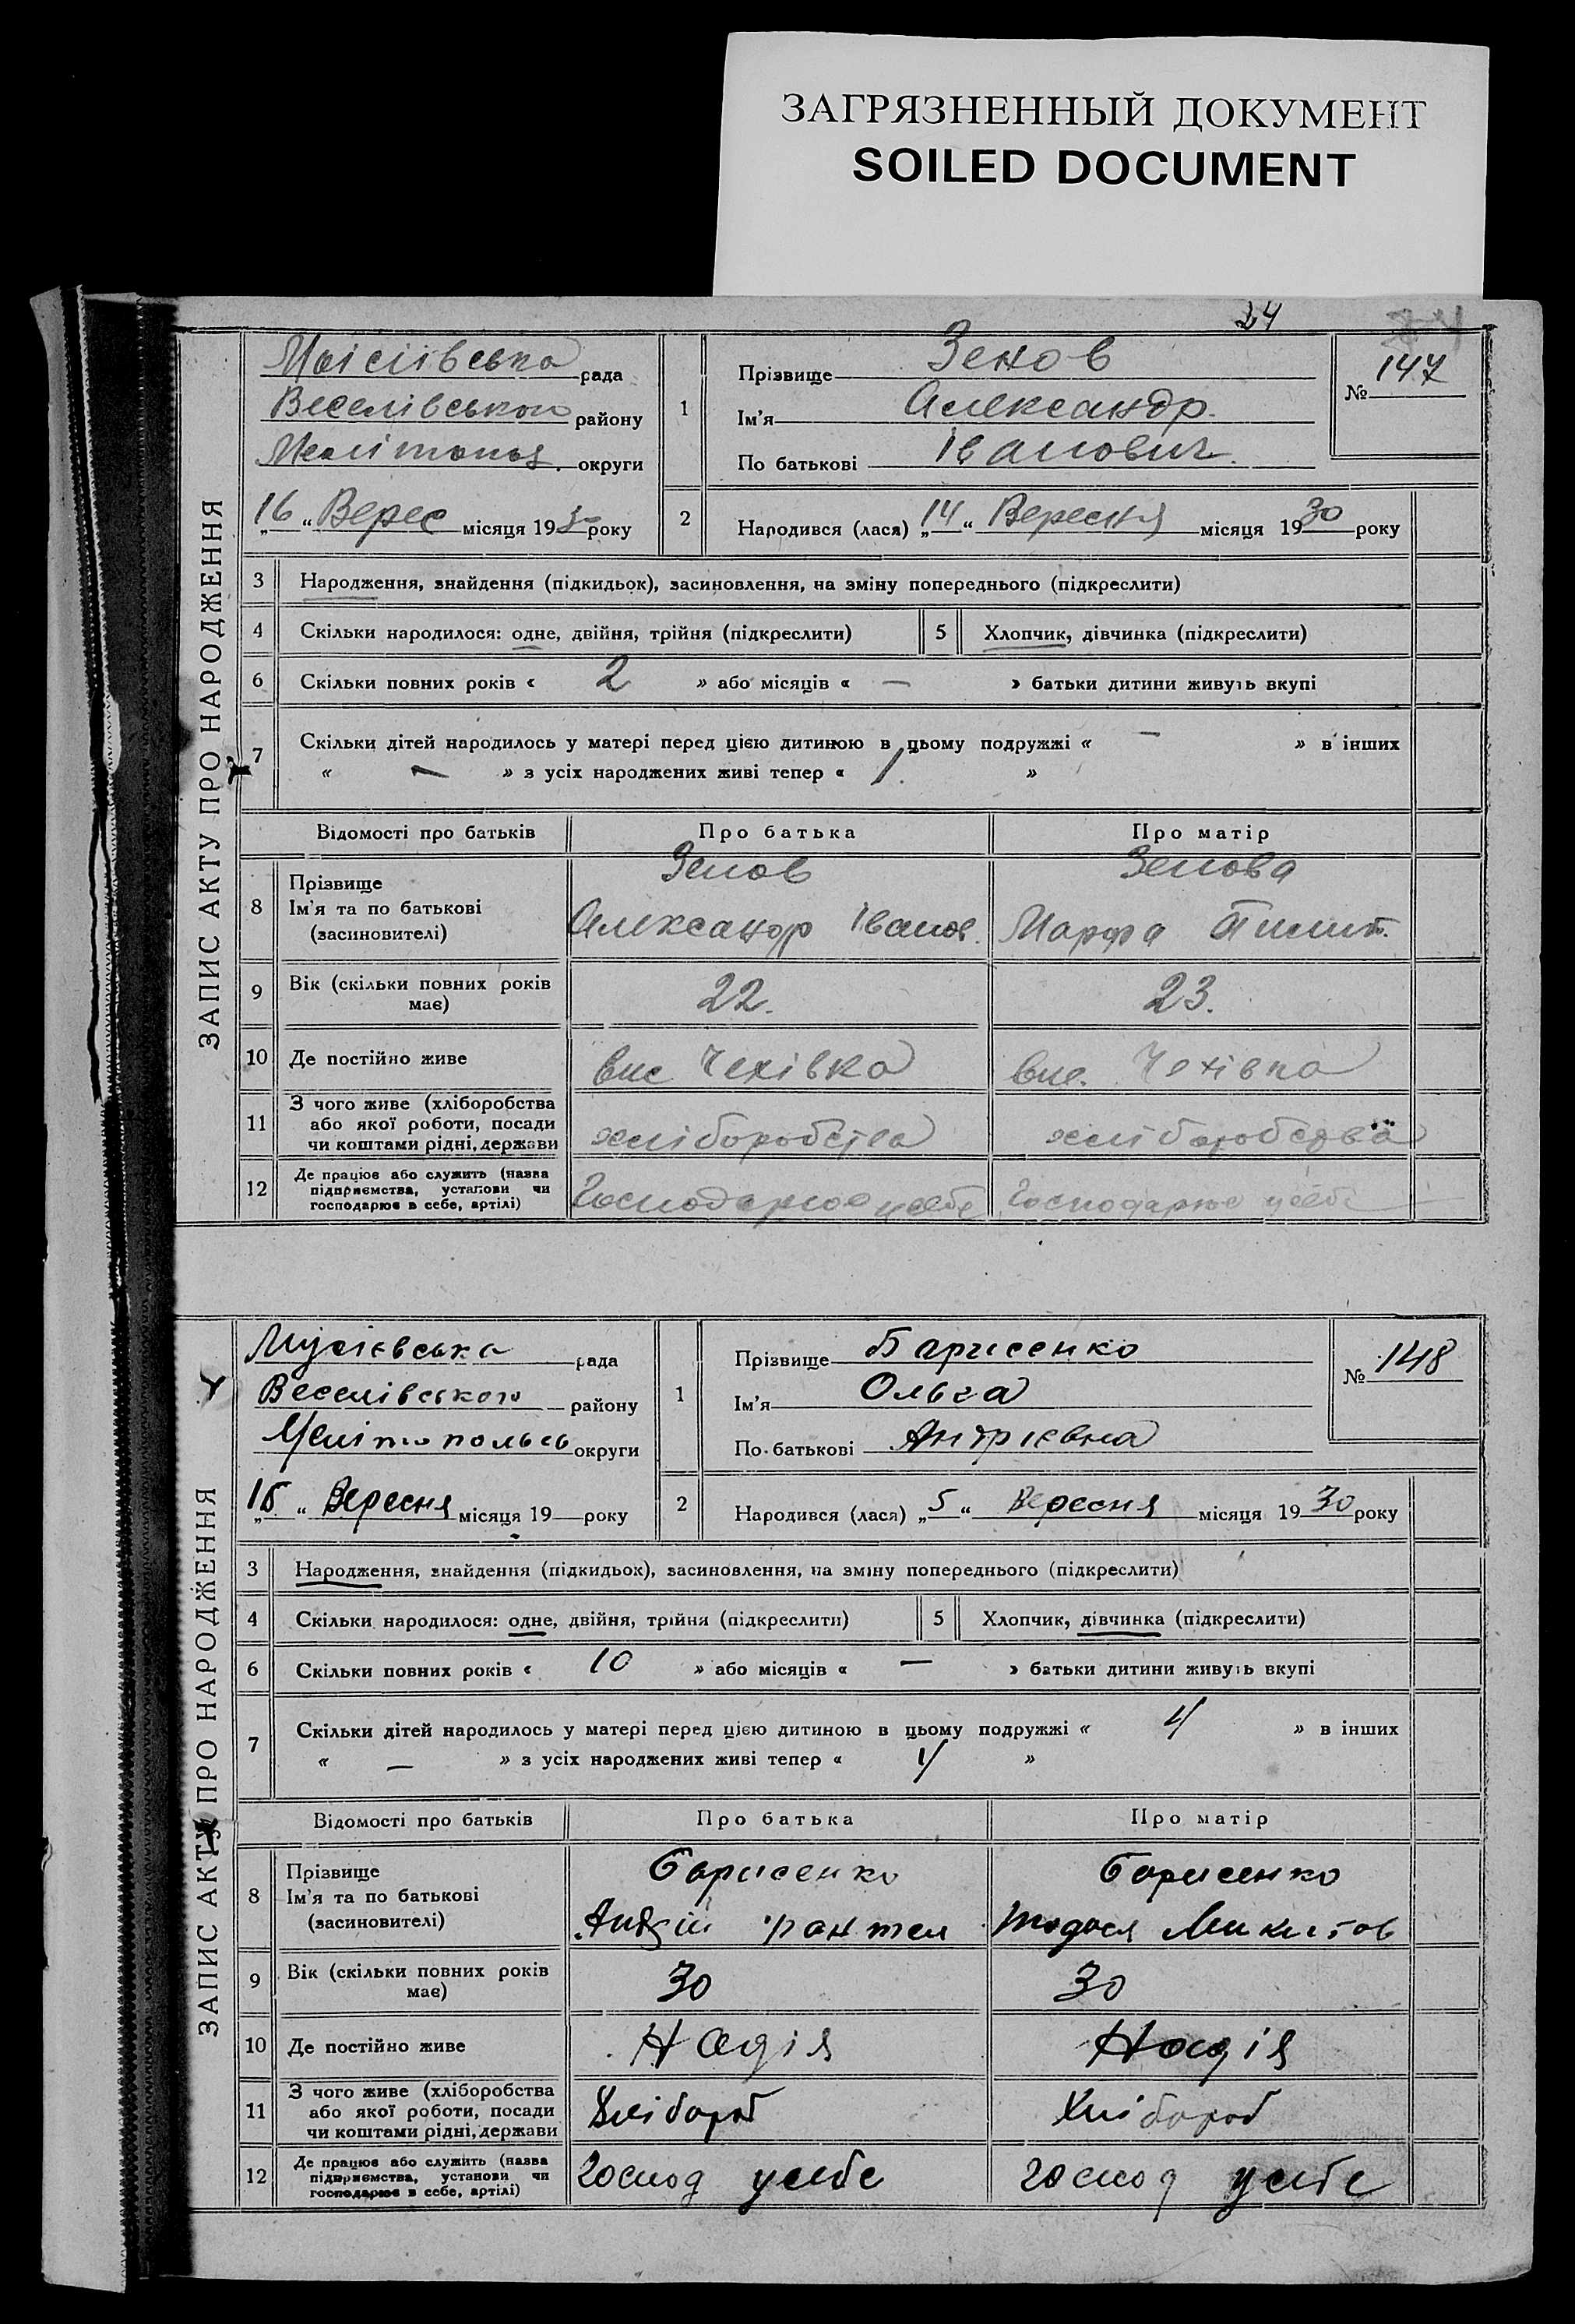 ЗАГРЯЗНЕННЫЙ ДОКУМЕНТ
SOILED DOCUMENT
24
ЗАПИС АКТУ ПРО НАРОДЖЕННЯ
Моісіївська рада
Веселівського району
округи
„16“ Верес місяця 1930 року
1
Прізвище Зенов
Ім'я Александр
По батькові Іванович
№ 147
2
Народився (лася) „14“ Вересня місяця 1930 року
3 Народження, знайдення (підкидьок), засиновлення, на зміну попереднього (підкреслити)
4 Скільки народилося: одне, двійня, трійня (підкреслити) 5 Хлопчик, дівчинка (підкреслити)
6 Скільки повних років « 2 » або місяців « — » батьки дитини живуть вкупі
7 Скільки дітей народилось у матері перед цією дитиною в цьому подружжі « — » в інших
« — » з усіх народжених живі тепер « 1 »
Відомості про батьків Про батька Про матір
8 Прізвище Зенов Зенова
Ім'я та по батькові
(засиновителі) Александр Іванов. Марфа
9 Вік (скільки повних років має) 22. 23.
10 Де постійно живе вис Чехівка вис. Чехівка
11 З чого живе (хліборобства
або якої роботи, посади
чи коштами рідні, держави хліборобства хліборобства
12 Де працює або служить (назва
підприємства, установи чи
господарює в себе, артілі) Господарює у себе Господарює у себе
ЗАПИС АКТУ ПРО НАРОДЖЕННЯ
Мусієвська рада
Веселівського району
Мелітопольсь округи
„15“ Вересня місяця 19 року
1
Прізвище Барисенко
Ім'я Ольга
По батькові Андрієвна
№ 148
2
Народився (лася) „5“ Вересня місяця 1930 року
3 Народження, знайдення (підкидьок), засиновлення, на зміну попереднього (підкреслити)
4 Скільки народилося: одне, двійня, трійня (підкреслити) 5 Хлопчик, дівчинка (підкреслити)
6 Скільки повних років « 10 » або місяців « — » батьки дитини живуть вкупі
7 Скільки дітей народилось у матері перед цією дитиною в цьому подружжі « 4 » в інших
« — » з усіх народжених живі тепер « 4 »
Відомості про батьків Про батька Про матір
8 Прізвище Барисенко Барисенко
Ім'я та по батькові
(засиновителі) Андрій Тодося Микитов
9 Вік (скільки повних років має) 30 30
10 Де постійно живе Надія Надія
11 З чого живе (хліборобства
або якої роботи, посади
чи коштами рідні, держави Хлібороб Хлібороб
12 Де працює або служить (назва
підприємства, установи чи
господарює в себе, артілі) Господ у себе господ у себе